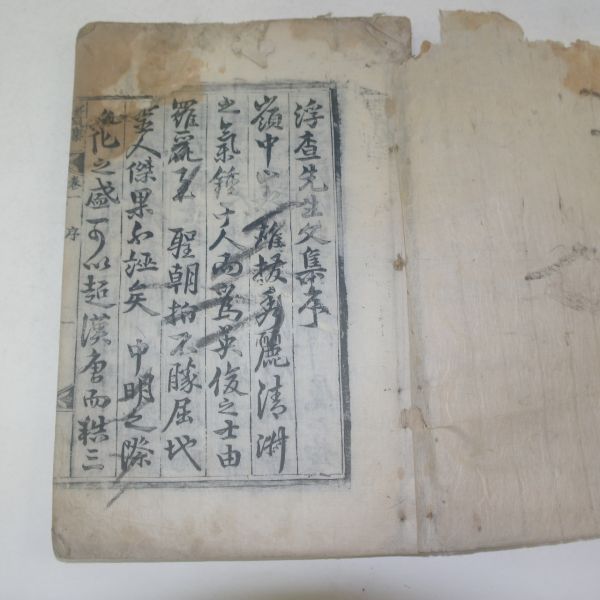 浮查先生文集序
嶺中山 雄拔秀麗清淑
之氣鍾于人而爲英俊之士由
羅麗至 聖朝指不勝屈地
靈人傑果不誣矣 中明之際
文化之盛可以超漢唐而軼三
卷一 序